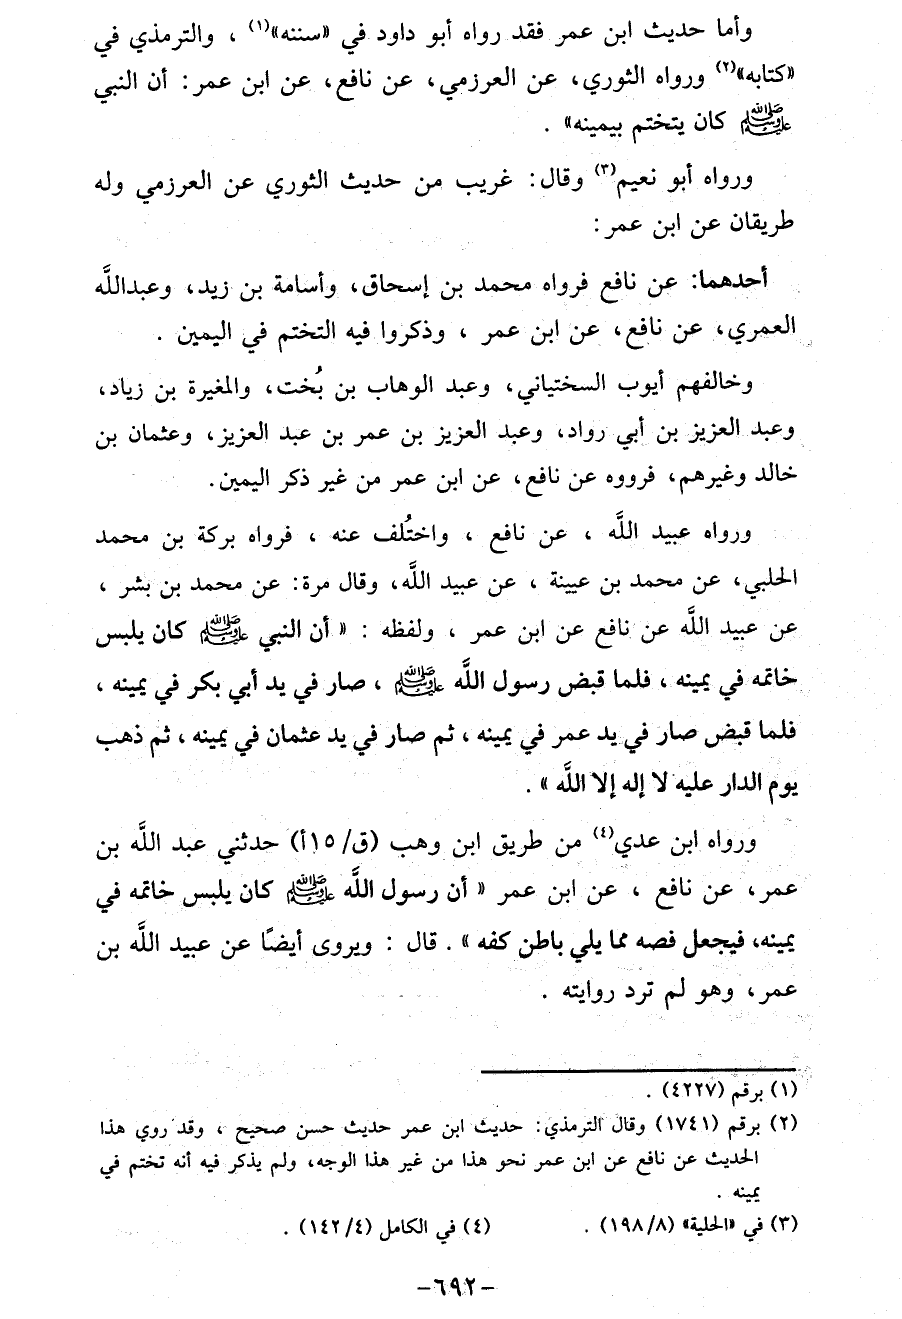 وأما حديث ابن عمر فقد رواه أبو داود في «سننه»(١) ، والترمذي في
«كتابه»(٢) ورواه الثوري، عن العرزمي، عن نافع، عن ابن عمر: أن النبي
ﷺ كان يتختم بيمينه» .
ورواه أبو نعيم(٣) وقال: غريب من حديث الثوري عن العرزمي وله
طريقان عن ابن عمر:
أحدهما: عن نافع فرواه محمد بن إسحاق، وأسامة بن زيد، وعبداللَّه
العمري، عن نافع، عن ابن عمر ، وذكروا فيه التختم في اليمين .
وخالفهم أيوب السختياني، وعبد الوهاب بن بُخت، والمغيرة بن زياد،
وعبد العزيز بن أبي رواد، وعبد العزيز بن عمر بن عبد العزيز، وعثمان بن
خالد وغيرهم، فرووه عن نافع، عن ابن عمر من غير ذكر اليمين.
ورواه عبيد اللَّه ، عن نافع ، واختُلف عنه ، فرواه بركة بن محمد
الحلبي، عن محمد بن عيينة ، عن عبيد اللَّه، وقال مرة: عن محمد بن بشر ،
عن عبيد اللَّه عن نافع عن ابن عمر ، ولفظه : « أن النبي ﷺ كان يلبس
خاتمه في يمينه ، فلما قبض رسول اللَّه ﷺ ، صار في يد أبي بكر في يمينه ،
فلما قبض صار في يد عمر في يمينه ، ثم صار في يد عثمان في يمينه ، ثم ذهب
يوم الدار عليه لا إله إلا اللَّه » .
ورواه ابن عدي(٤) من طريق ابن وهب (ق/١٥أ) حدثني عبد اللَّه بن
عمر، عن نافع ، عن ابن عمر « أن رسول اللَّه ﷺ كان يلبس خاتمه في
يمينه، فيجعل فصه مما يلي باطن كفه » . قال : ويروى أيضًا عن عبيد اللَّه بن
عمر، وهو لم ترد روايته .
(١) برقم (٤٢٢٧) .
(٢) برقم (١٧٤١) وقال الترمذي: حديث ابن عمر حديث حسن صحيح ، وقد روي هذا
الحديث عن نافع عن ابن عمر نحو هذا من غير هذا الوجه، ولم يذكر فيه أنه تختم في
يمينه .
(٣) في «الحلية» (١٩٨/٨) . (٤) في الكامل (١٤٢/٤) .
-٦٩٢-